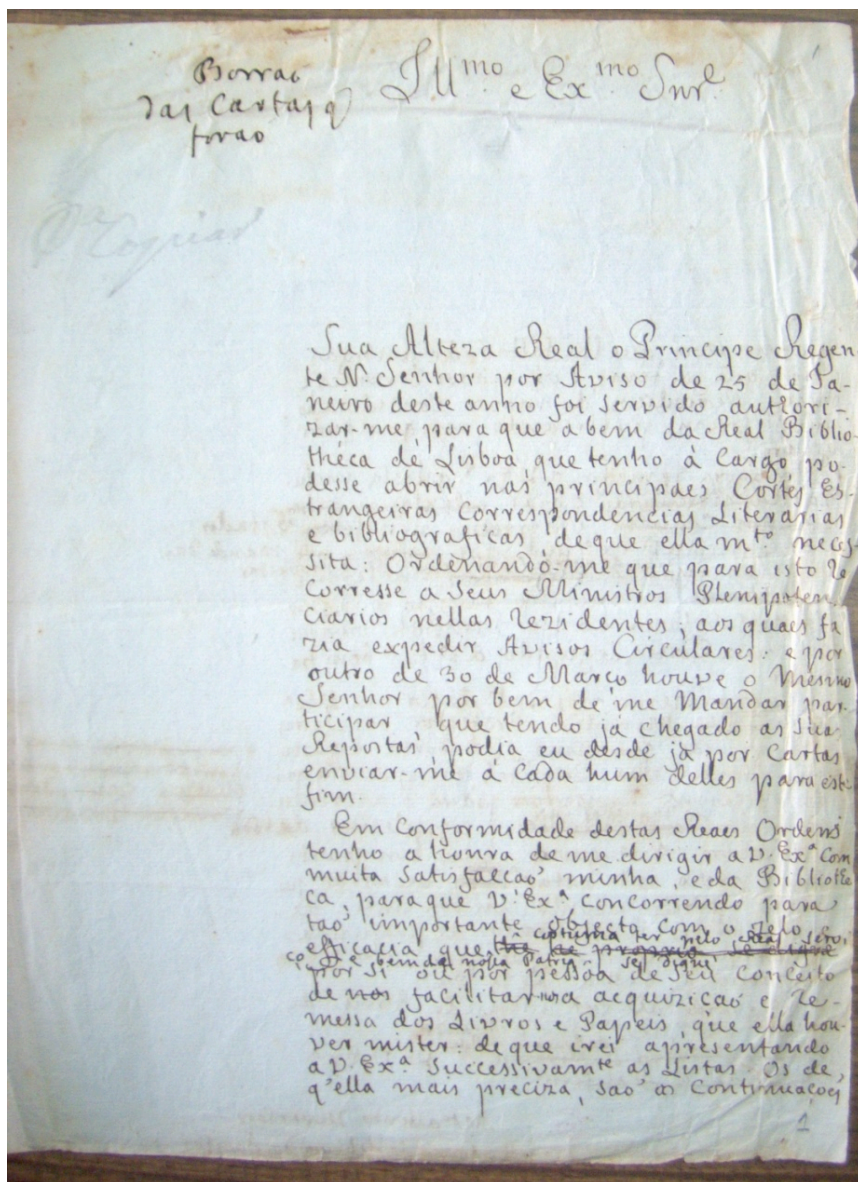 Borrao
das Cartas q
forao
Ill.mo e Ex.mo Snr.
Pa Copiar
Sua Alteza Real o Principe Regen
te N. Senhor por Aviso de 25 de Ja-
neiro deste anno foi servido authori-
zar-me, para que a bem da Real Biblio-
théca de Lisboa, que tenho à Cargo, po-
desse abrir nas principaes Cortes Es-
trangeiras Correspondencias Literarias
e bibliograficas, de que ella mto neces-
sita: Ordenando-me que para isto re
Corresse a Seus Ministros Plenipoten-
ciarios nellas rezidentes; aos quaes fa
zia expedir Avisos Circulares: e por
outro de 30 de Março houve o Mesmo
Senhor por bem de me Mandar par-
ticipar, que tendo já chegado as Suas
Repostas, podia eu desde já por Cartas
enviar-me á Cada hum delles para este
fim.
Em Conformidade destas Reaes Ordens
tenho a honra de me dirigir a V. Exa Com
muita Satisfaccaõ minha, e da Bibliothe
ca, para que V. Exa concorrendo para
taõ importante objecto com o zelo e
costuma ter pelo Real Servi
efficacia que lhe he proprio se digne
ço e bem da nossa Patria, se digne
por Si ou por pessoa de Seu Conceito
de nos facilitar a acquiziçaõ e re-
messa dos Livros e Papeis, que ella hou-
ver mister: de que irei apresentando
a V. Exa Successivamte as Listas. Os de
q' ella mais preciza, saõ as Continuaçoẽs
1